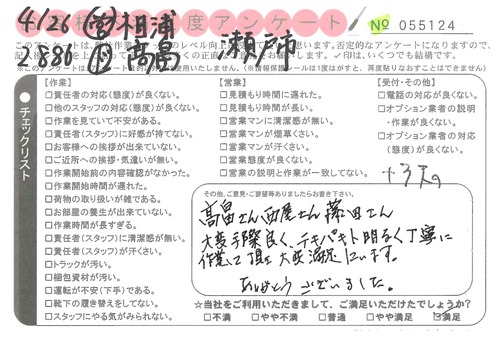 4/26 ㊂相浦
度アンケート
№ 055124
2880 高畠 瀬戸市
このアンケートは、
のレベル向上
います。否定的なアンケートになりますので、
記入後
くの正直
いつでも結構です。
※このアンケートは
使用いたしません。(情報保護シールは1度はがすと、再度貼りなおすことはできません)
●チェックリスト
【作業】
□責任者の対応(態度)が良くない。
□他のスタッフの対応(態度)が良くない。
□作業を見ていて不安がある。
□責任者(スタッフ)に好感が持てない。
□お客様への挨拶が出来ていない。
□ご近所への挨拶・気遣いが無い。
□作業開始前の内容確認がなかった。
□作業開始時間が遅れた。
□荷物の取り扱いが雑である。
□お部屋の養生が出来ていない。
□作業時間が長すぎる。
□責任者(スタッフ)に清潔感が無い。
□責任者(スタッフ)が汗くさい。
□トラックが汚い。
□梱包資材が汚い。
□運転が不安(下手)である。
□靴下の履き替えをしてない。
□スタッフにやる気がみられない。
【営業】
□見積もり時間に遅れた。
□見積もり時間が長い。
□営業マンに清潔感が無い。
□営業マンが煙草くさい。
□営業マンが汗くさい。
□営業態度が良くない。
□営業の説明と作業が一致してない。
【受付・その他】
□電話の対応が良くない。
□オプション業者の説明
・作業が良くない。
□オプション業者の対応
(態度)が良くない。
その他、ご意見・ご要望等ありましたらお書き下さい。
高畠さん西尾さん藤田さん
大変手際良く、テキパキと明るく丁寧に
作業して頂き大変満足しています。
ありがとうございました。
☆当社をご利用いただきまして、ご満足いただけたでしょうか?
□不満 □やや不満 □普通 □やや満足 ☑満足